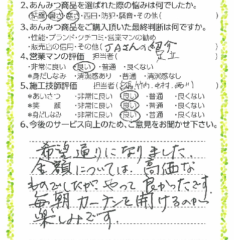 2.あんみつ商品を選ばれた際の悩みは何でしたか。
・防犯・騒音・その他(
3.あんみつ商品をご購入頂いた最終判断は何ですか。
・性能・ブランド・クチコミ・営業マンの勧め
・販売店の信用・その他( JAさんの紹介
4.営業マンの評価
・非常に良い ・良い ・普通 ・良くない
・身だしなみ ・清潔感あり ・普通 ・清潔感なし
5.施工技術評価 ・非常に良い ・良い ・普通
・あいさつ ・非常に良い ・良い ・普通 ・良くない
・笑 顔 ・非常に良い ・良い ・普通 ・良くない
・身だしなみ ・非常に良い ・良い ・普通 ・良くない
6.今後のサービス向上のため、ご意見をお聞かせ下さい。
希望通りになりました。
金額については、高価な
ものでしたが、やって良かったです。
毎朝カーテンを開けるのが
楽しみです。